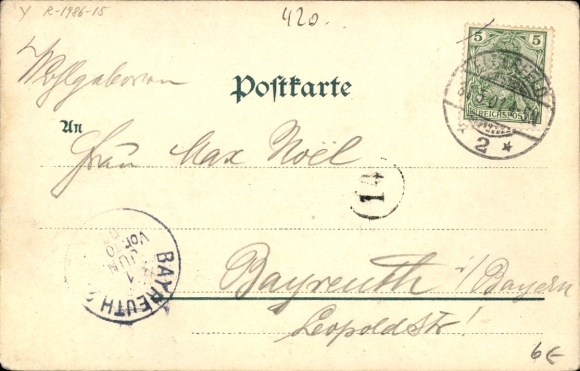 Y R-1986-15
420.
5 5
REICHSPOST
Wohlgeboren
Postkarte
An
Frau Max Noël
2
14
BAYREUTH
1 JUN
Vor
Bayreuth i/Bayern
Leopoldstr!
6€